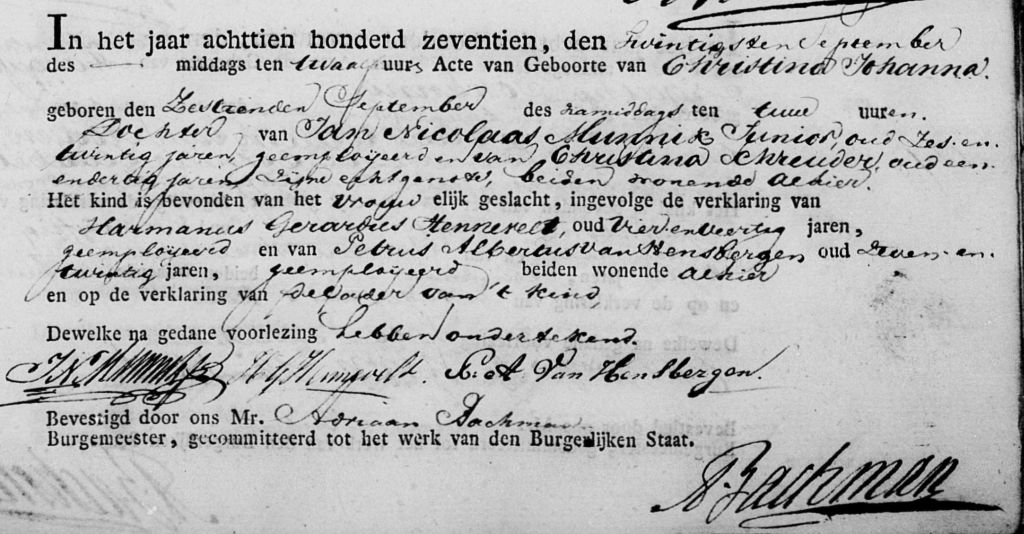 In het jaar achttien honderd zeventien, den Twintigsten September
des middags ten twaalf uurs Acte van Geboorte van Christina Johanna.
geboren den Zestienden September des namiddags ten twee uuren.
Dochter van Jan Nicolaas Munnik Junior, oud Zes en
twintig jaren, geemploijeerd en van Christina Schreuder, oud een
endertig jaren, Zijne echtgenote, beiden wonende alhier.
Het kind is bevonden van het vrouw elijk geslacht, ingevolge de verklaring van
Harmanus Gerardus Hennevelt, oud vier en veertig jaren,
geemploijeerd en van Petrus Albertus van Hensbergen oud Zeven en
twintig jaren, geemploijeerd beiden wonende alhier
en op de verklaring van de Vader van 't kind
Dewelke na gedane voorlezing hebben ondertekend.
J N Munnik H G Hennevelt. P: A Van Hensbergen.
Bevestigd door ons Mr. Adriaan Bachman
Burgemeester, gecommitteerd tot het werk van den Burgerlijken Staat.
A Bachman